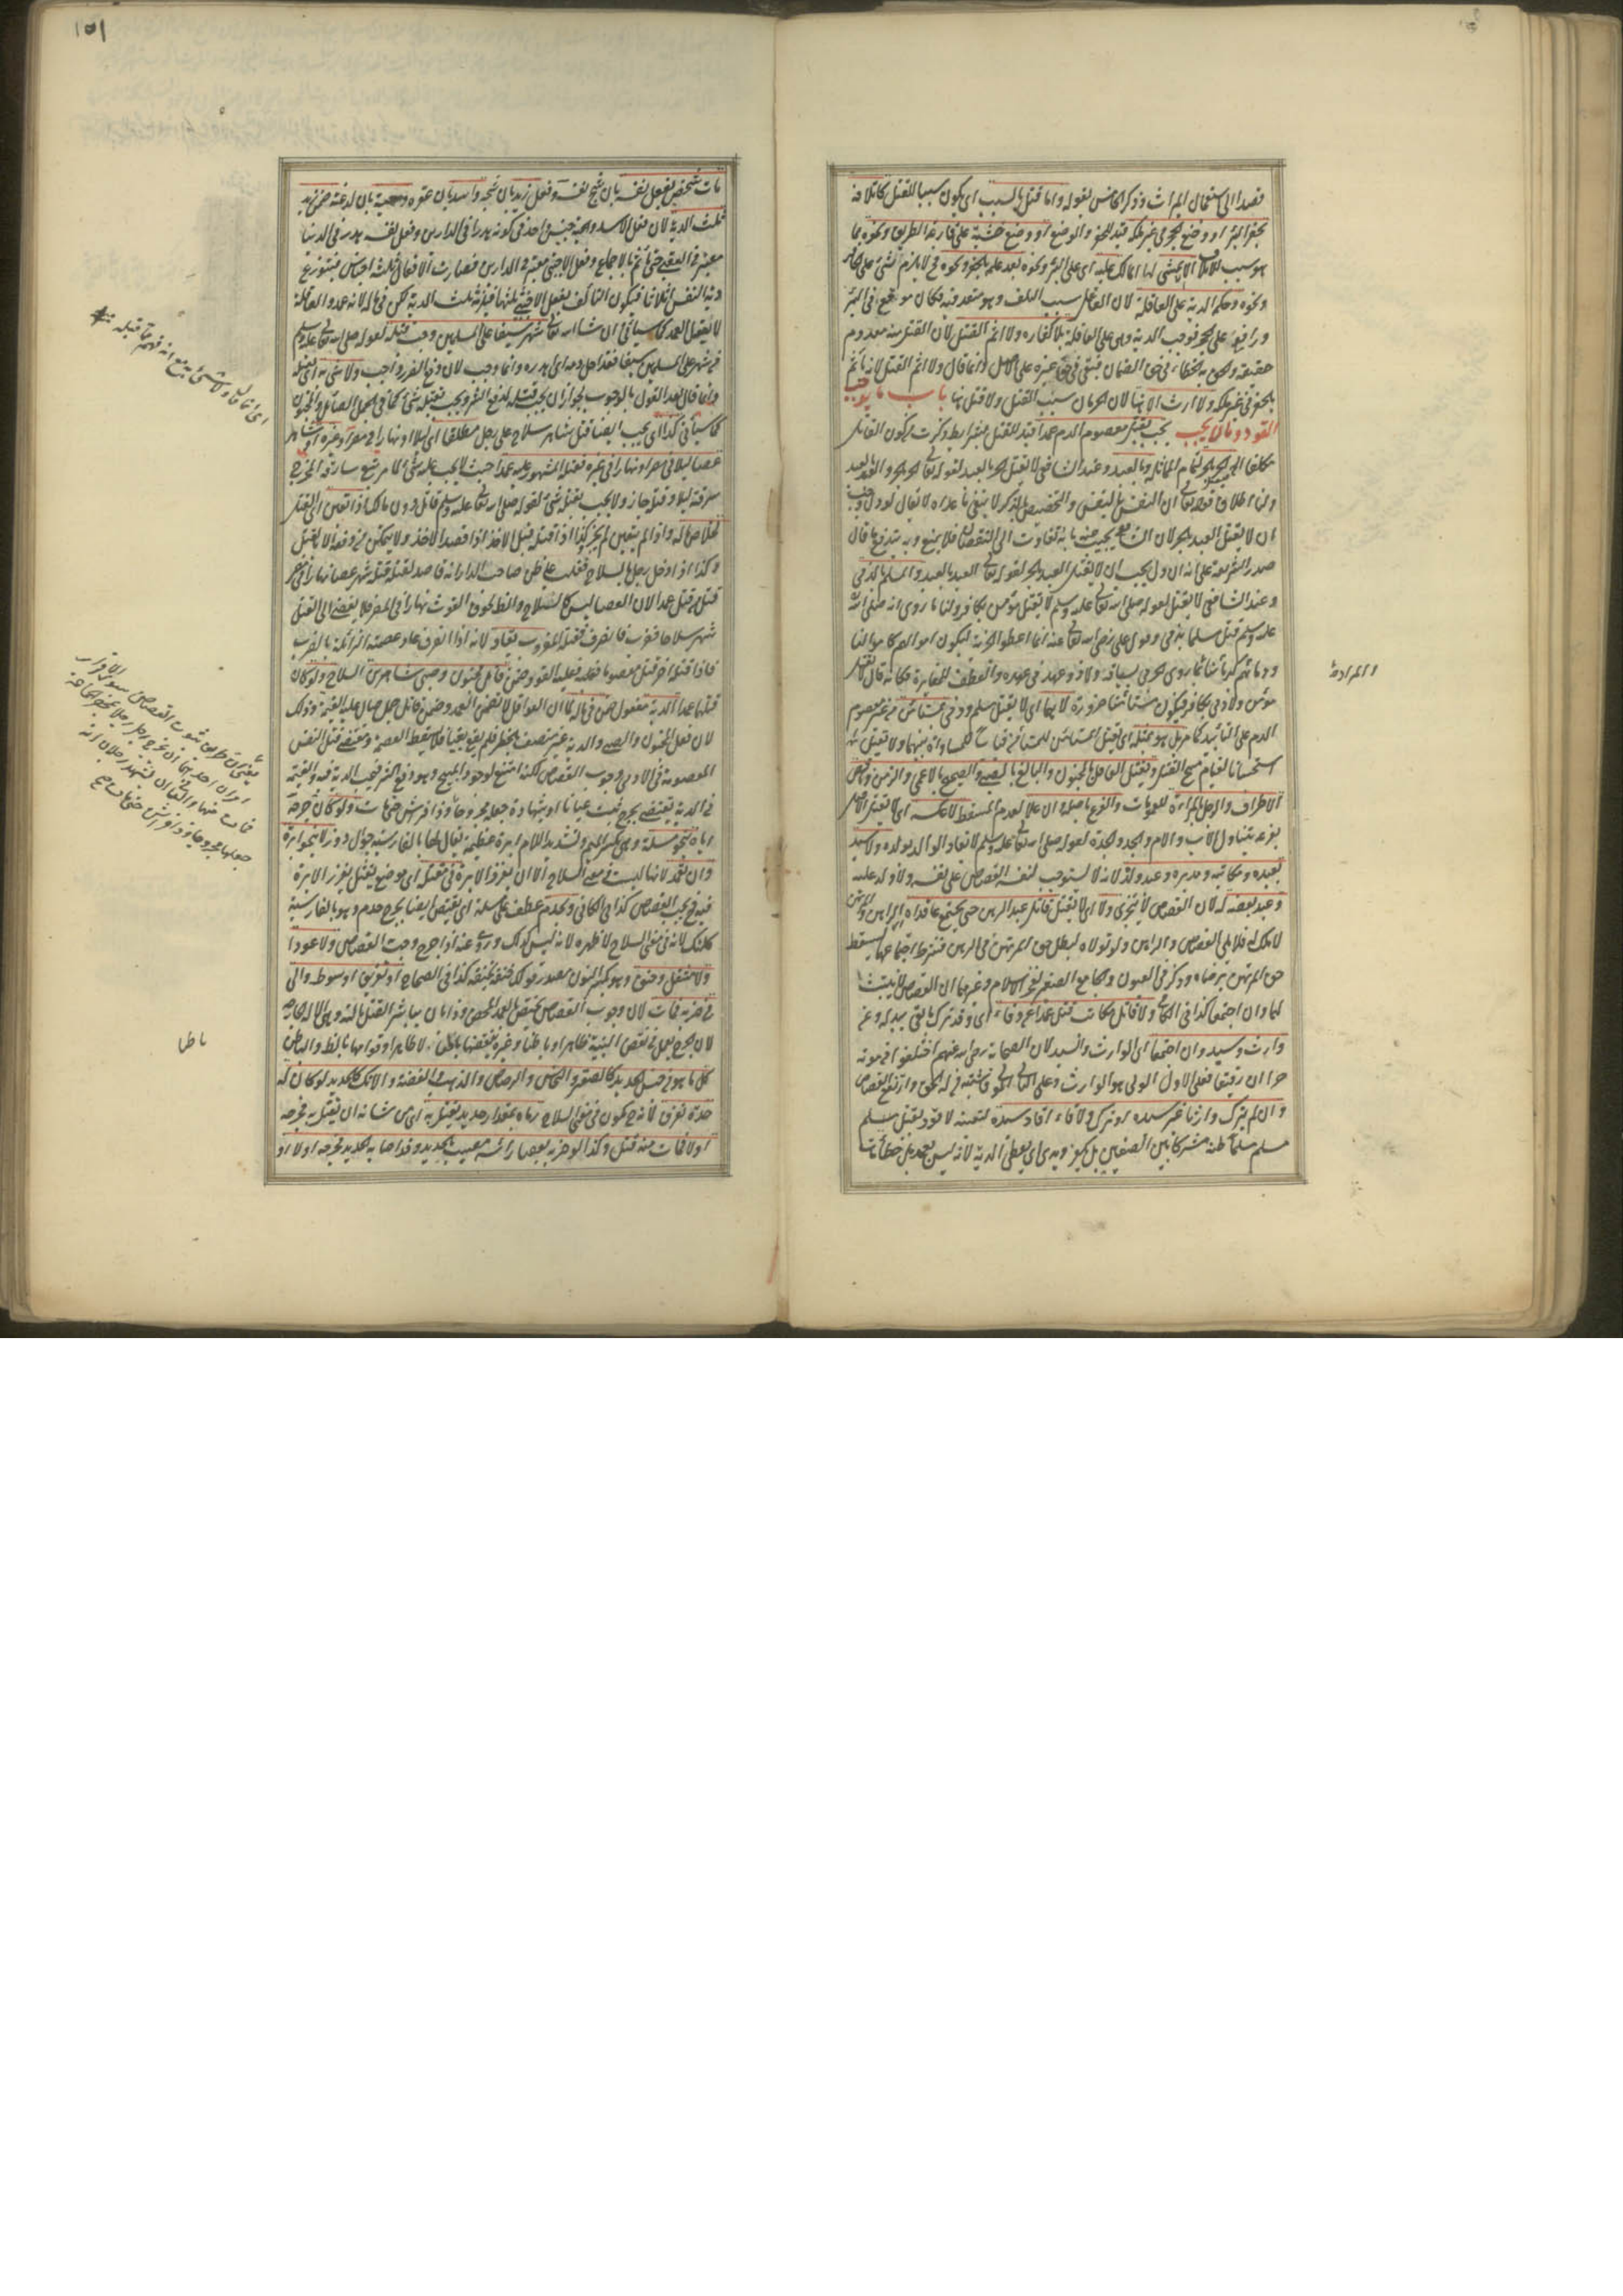 قصدا الى استعمال الميراث وذكر الخامس بقوله واما قتل بالسبب اى يكون سببا للقتل كاتلافه
بحفر البئر او وضع الحجر فى غير ملكه قيد للحفر والوضع او وضع خشبة على قارعة الطريق ونحوه مما
هو سبب للاتلاف الا ان يمشى الهالك عليه اى على البئر ونحوه بعد علمه بالحفر ونحوه فح لا يلزم شئ على الحافر
ونحوه وحكمه الدية على العاقلة لان القاتل سبب التلف وهو متعد فيه فكان موقع فى البئر
ورافع على الحجر فوجب الدية وهى على العاقلة بلا كفارة ولا اثم القتل لان القتل منه معدوم
حقيقة والحق به بالخطاء فى حق الضمان فبقى فى حق غيره على الاصل وانما قال ولا اثم القتل لانه ياثم
بالحفر فى غير ملكه ولا ارث الا ههنا لان الحرمان بسبب القتل ولا قتل ههنا باب ما يوجب
القود وما لا يجب يجب بقتل معصوم الدم عمدا قيد للقتل بشرايط ذكرت بكون القاتل
مكلفا الحر بالحر لتمام المماثلة وبالعبد وعند الشافعى لا يقتل الحر بالعبد لقوله تعالى الحر بالحر والعبد بالعبد
ولنا اطلاق قوله تعالى ان النفس بالنفس والتخصيص بالذكر لا ينفى ما عداه لا يقال لو دل لوجب
ان لا يقتل العبد بالحر لان الشافعى يجيب عنه بانه تفاوت الى النقصان فلا يمنع وبه يندفع ما قال
صدر الشريعة على انه ان دل يجب ان لا يقتل العبد بالحر لقوله تعالى العبد بالعبد والمسلم بالذمى
وعند الشافعى لا يقتل لقوله صلى الله تعالى عليه وسلم لا يقتل مؤمن بكافر ولنا ما روى انه صلى الله
عليه وسلم قتل مسلما بذمى وقول على رضى الله تعالى عنه انما اعطوا الجزية ليكون اموالهم كاموالنا
ودماؤهم كدمائنا بما روى الحربى بسياقه ولا ذو عهد فى عهده والعطف للمغايرة فكانه قال لا يقتل
مؤمن ولا ذمى بكافر فيكون مستأمنا ضرورة لا هما اى لا يقتل مسلم وذمى بمستأمن فانه غير معصوم
الدم على التأبيد كما مر بل هو بمثله اى يقتل المستأمن بالمستأمن قياسا للمساواة بينهما ولا يقتل
استحسانا لقيام مبيح القتل ويقتل العاقل بالمجنون والبالغ بالصبى والصحيح بالاعمى والزمن وناقص
الاطراف والرجل بالمرأة للعمومات والفرع باصله وان علا لعدم المسقط لا بعكسه اى لا يقتل الاصل
بفرعه يتناول الاب والام والجد والجدة لقوله صلى الله تعالى عليه وسلم لا يقاد الوالد بولده ولا سيد
بعبده ومكاتبه ومدبره وعبد ولده لانه لا يستوجب لنفسه القصاص على نفسه ولا ولده عليه
وعبد بعضه له لان القصاص لا يتجزى ولا اى لا يقتل قاتل عبد الرهن حتى يجتمع عاقداه الراهن والمرتهن
لا ملك له فلا يلى القصاص والراهن لو تولاه لبطل حق المرتهن فى الرهن فشرط اجتماعهما ليسقط
حق المرتهن برضاه وذكر فى العيون والجامع الصغير لفخر الاسلام وغيرهما ان القصاص لا يثبت
لهما وان اجتمعا كذا فى الكافى ولا قاتل مكاتب قتل عمدا عن وفاء اى وقد ترك ما يفى ببدله وعن
وارث وسيد وان اجتمعا اى الوارث والسيد لان الصحابة رضى الله عنهم اختلفوا فى موته
حرا ان رقيقا فعلى الاول الولى هو الوارث وعلى الثانى المولى فاشتبه من له الحق وارتفع القصاص
وان لم يترك وارثا غير سيده او ترك ولا وفاء اقاد سيده لتعينه لا قود بقتل مسلم
مسلما ظنه مشركا بين الصفين بل يكفر ويدى اى يعطى الدية لانه ليس بعمد بل خطأ
والمراد
١٥١
مات شخص بفعل نفسه بان شج نفسه وفعل زيد بان شجه واسد بان عقره وحية بان لدغته ضمن زيد
ثلث الدية لان فعل الاسد والحية جنس واحد فى كونه هدرا فى الدارين وفعل نفسه هدر فى الدنيا
معتبر فى العقبى حتى ياثم بالاجماع وفعل الاجنبى معتبر فى الدارين فصارت الافعال ثلثة اجناس فيتوزع
دية النفس اثلاثا فيكون التالف بفعل الاجنبى ثلثها فيلزم ثلث الدية لكن فى ماله لانه عمد والعاقلة
لا يعقل العمد كما سيأتى ان شاء الله تعالى شهر سيفا على المسلمين وجب قتله لقوله صلى الله تعالى عليه وسلم
من شهر على المسلمين سيفا فقد احل دمه اى هدره وانما وجب لان دفع الضرر واجب ولا شئ به اى بقتله
وانما قال بعد القول بالوجوب لجواز ان يجب قتله لدفع الشر ويجب بقتله شئ كما فى الجمل الصائل والمجنون
كما سيأتى كذا اى يجب ايضا قتل شاهر سلاح على رجل مطلقا اى ليلا او نهارا فى مصر او غيره او شاهر
عصا ليلا فى مصر او نهارا فى غيره فقتله المشهور عليه عمدا حيث لا يجب عليه شئ لما مر تبع سارقه المخرج
سرقته ليلا وقتله جاز ولا يجب بقتله شئ لقوله صلى الله تعالى عليه وسلم قاتل دون مالك اذا تعين القتل
لخلاص ماله واذا لم يتعين لم يجز وكذا اذا قتله قبل الاخذ اذا قصد الاخذ ولا يتمكن من دفعه الا بالقتل
وكذا اذا دخل رجل بالسلاح فغلب على ظن صاحب الدار انه قاصد لقتله قتله شهر عصا نهارا فى مصر
قتل من قتله عمدا لان العصا ليس كالسلاح والظاهر لحوق الغوث نهارا فى المصر فلا يفضى الى القتل
شهر سلاحا فضرب فانصرف فقتله المضروب يقاد لانه اذا انصرف عاد عصمته الزائلة بالضرب
فاذا قتله اخر قتل معصوما فعليه القود وضمن قاتل مجنون وصبى شاهرين السلاح ولو كان
قتلهما عمدا الدية مفعول ضمن فى ماله لما ان العواقل لا تضمن العمد وضمن قاتل جمل صال عليه القيمة وذلك
لان فعل المجنون والصبى والدابة غير متصف بالحظر فلم يقع بغيا فلا يسقط العصمة ومقتضى قتل النفس
المعصومة فى الاولى وجوب القصاص لكنه امتنع لوجود المبيح وهو دفع الشر فيجب الدية فيه والقيمة
فى الدابة يقتص بجرح ثبت عيانا او شهادة جعله مجروحا وذا فراش حتى مات ولو كان جرحه
اياه بنحو مسلة وهى بكسر الميم وتشديد اللام ابرة عظيمة يقال لها بالفارسية جوال دوز لا بنحو ابرة
وان تعمد لانها ليست فى معنى السلاح الا ان يغرز الابرة فى مقتله اى موضع يقتل بغرز الابرة
فيه فح يجب القصاص كذا فى الكافى وبحدم عطف على مسلة اى يقتص ايضا بجرح حدم وهو بالفارسية
كلنك لانه فى معنى السلاح لا ظهره لانه ليس كذلك وروى عنه اذا جرح وجب القصاص ولا عودا
ولا مثقل وخنق وهو بكسر النون مصدر قولك خنقه يخنقه كذا فى الصحاح او تغريق او سوط والى
فى ضربه فمات لان وجوب القصاص يختص بالعمد المحض وذا بان يباشر القتل بآلته وهى الآلة الجارحة
لان الجرح يعمل فى نقض البنية ظاهرا وباطنا وغيره ينقضها باطنا لا ظاهرا وقوامها بالظاهر والباطن
كل ما هو من جنس الحديد كالصفر والنحاس والرصاص والذهب والفضة والآنك كالحديد لو كان له
حدة تفرق لانه ح يكون فى معنى السلاح رماه بمقدار حديد يقتل به اى من شانه ان يقتل به فجرحه
اولا فمات منه قتل وكذا لو ضربه بعصا رأسه مصيب بحديد وقد اصابه الحديد بجرحه اولا او
اى انما قال ولا شئ به مع انه فهم مما قبله منه
يعنى ان طريق ثبوت القصاص سوى الاقرار
امران احدهما ان يجرح رجل رجلا بمحضر الجماعة
فمات منها والثانى ان يشهد رجلان انه
جعله مجروحا وذا فراش حتى مات مح
باطنا